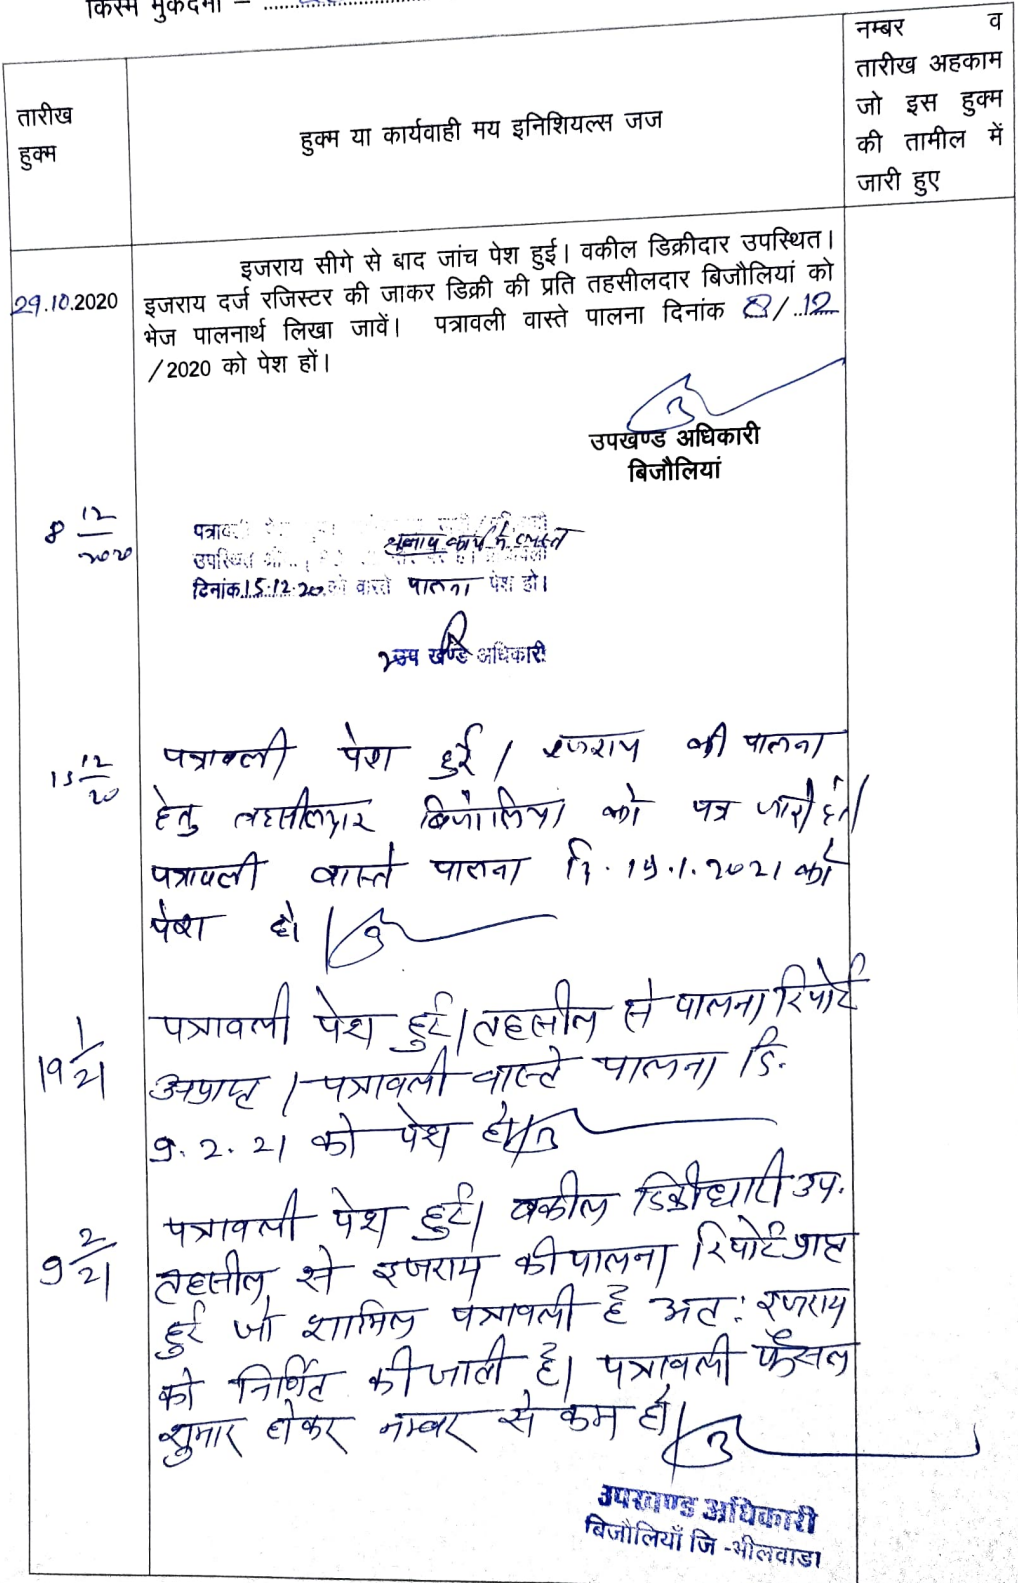 किस्म मुकदमा –
तारीख
हुक्म
हुक्म या कार्यवाही मय इनिशियल्स जज
नम्बर व
तारीख अहकाम
जो इस हुक्म
की तामील में
जारी हुए
29.10.2020
इजराय सीगे से बाद जांच पेश हुई। वकील डिक्रीदार उपस्थित।
इजराय दर्ज रजिस्टर की जाकर डिक्री की प्रति तहसीलदार बिजौलियां को
भेज पालनार्थ लिखा जावें। पत्रावली वास्ते पालना दिनांक 8/.12
/2020 को पेश हों।
उपखण्ड अधिकारी
बिजौलियां
8 12/2020
कार्य में व्यस्त
उपस्थित
दिनांक 15.12.20 को वास्ते पालना पेश हो।
उप खण्ड अधिकारी
15 12/20
पत्रावली पेश हुई। इजराय की पालना
हेतु तहसीलदार बिजौलियां को पत्र जारी हो।
पत्रावली वास्ते पालना दि. 19.1.2021 को
पेश हो।
19 1/21
पत्रावली पेश हुई। तहसील से पालना रिपोर्ट
अप्राप्त। पत्रावली वास्ते पालना दि.
9.2.21 को पेश हो।
9 2/21
पत्रावली पेश हुई। वकील डिक्रीधारी उप.
तहसील से इजराय की पालना रिपोर्ट प्राप्त
हुई जो शामिल पत्रावली है अत: इजराय
को निर्णित की जाती है। पत्रावली फैसल
शुमार होकर नम्बर से कम हो।
उपखण्ड अधिकारी
बिजौलियाँ जि -भीलवाडा